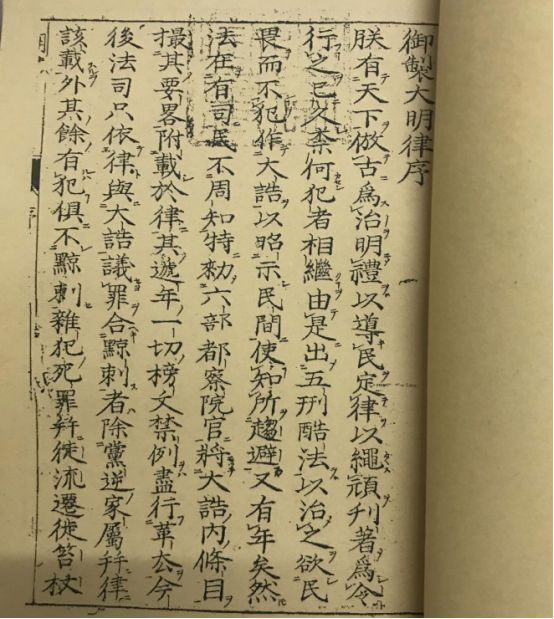 御製大明律序
朕有天下倣古爲治明禮以導民定律以繩頑刋著爲令
行之已久柰何犯者相繼由是出五刑酷法以治之欲民
畏而不犯作大誥以昭示民間使知所趨避又有年矣然
法在有司民不周知特勑六部都察院官將大誥内條目
撮其要畧附載於律其逓年一切榜文禁例盡行革去今
後法司只依律與大誥議罪合黥刺者除黨逆家屬幷律
該載外其餘有犯俱不黥刺雜犯死罪幷徒流遷徙笞杖
序